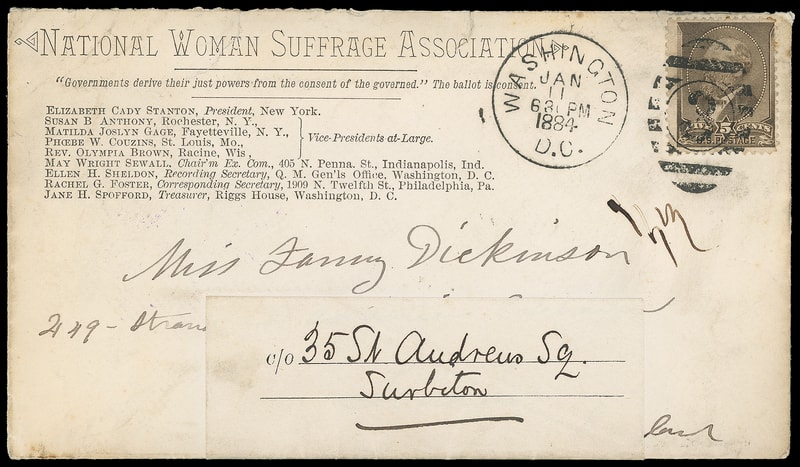 NATIONAL WOMAN SUFFRAGE ASSOCIATION
"Governments derive their just powers from the consent of the governed." The ballot is consent.
ELIZABETH CADY STANTON, President, New York.
SUSAN B. ANTHONY, Rochester, N. Y.,
MATILDA JOSLYN GAGE, Fayetteville, N. Y.,
PHŒBE W. COUZINS, St. Louis, Mo.,
REV. OLYMPIA BROWN, Racine, Wis,
Vice-Presidents at-Large.
MAY WRIGHT SEWALL. Chair'm Ex. Com., 405 N. Penna. St., Indianapolis, Ind.
ELLEN H. SHELDON, Recording Secretary, Q. M. Gen'ls Office, Washington, D. C.
RACHEL G. FOSTER, Corresponding Secretary, 1909 N. Twelfth St., Philadelphia, Pa.
JANE H. SPOFFORD, Treasurer, Riggs House, Washington, D. C.
WASHINGTON
JAN
11
630 PM
1884
D.C.
5 CENTS
U.S. POSTAGE
Miss Fanny Dickinson
449 - Stran
c/o 35 St Andrews Sq.
Surbiton